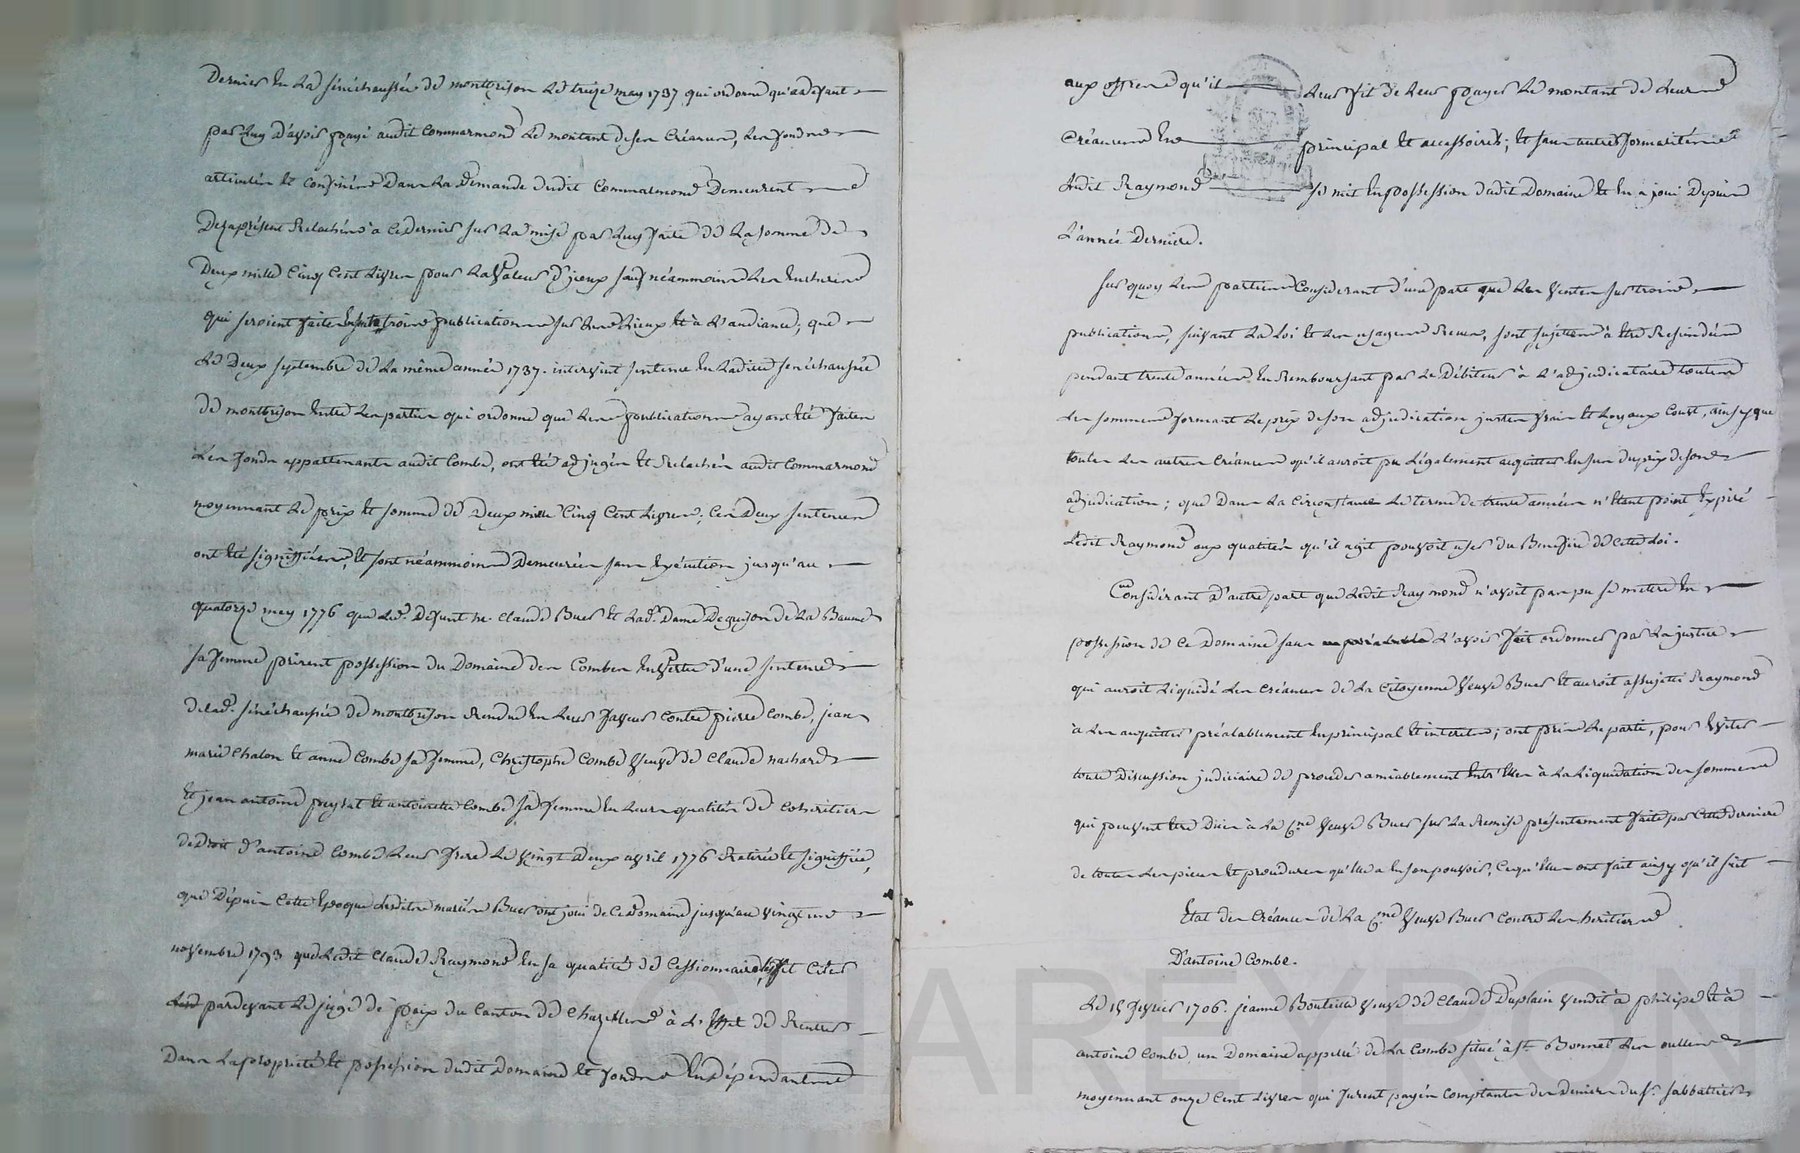 Dernier en la sénéchaussée de montbrison le treize may 1737 qui ordonne qu'adefaut
par luy d'avoir payé audit Commarmond le montant de sa Créance, les fonds
articulés et confinés dans la demande dudit Commarmond Demeurent
Desaprésent Relachés a ce dernier sur la mise par luy faite de la somme de
Deux mille Cinq Cent Livres pour la Valeur d'iceux sauf néammoins les encheres
qui seroient faites trois publications sur les lieux et à l'audiance, que
le Deux septembre de la même année 1737. intervint sentence en ladite sénéchaussée
de montbrison entre les parties qui ordonne que les publications ayant été faites
les fonds appartenants audit Combe, ont été adjugés et Relachés audit Commarmond
moyennant le prix et somme de Deux mille Cinq Cent Livres; Ces Deux sentences
ont été signiffiées, et sont néammoins Demeurées sans exécution jusqu'au
quatorze may 1776 que led. Defunt me. Claude Buer et lad. Dame Deguison de la Baume
sa femme prirent possession du Domaine des Combes en Vertu d'une sentence
de lad. sénéchaussée de montbrison Rendue en leur faveur Contre pierre Combe, jean
marie Chalon et anne Combe sa femme, Christophe Combe Veuve de Claude nachard
Et jean antoine peyrat et antoinette Combe sa femme en leurs qualités de Coheritiers
de Droit d'antoine Combe leur frere le Vingt Deux avril 1776 Retirée et signiffiée,
que Dépuis Cette Epoque lesdits mariés Buer ont joui de Ce Domaine jusqu'au Vingt
novembre 1793 que Ledit Claude Raymond en sa qualité de Cessionnaire, fit Citer
pardevant le juge de paix du Canton de Chazelles à l'Effet de Rentrer
Dans la propriété et possession dudit Domaine et fonds en Dépendants
aux offres qu'il leur fit de leur payer le montant de leurs
Créances en principal et accessoires; et sans autres formalités
Ledit Raymond se mit en possession dudit Domaine et en a joui Depuis
L'année Derniere.
sur quoy les parties Considerant d'une part que les Ventes sur trois
publications, suivant la Loi et les usages Recus, sont sujettes à être Rescindées
pendant trente années en Remboursant par le Débiteur à l'adjudicataire toutes
les sommes formant le prix de son adjudication justes frais et Loyaux Cout, ainsy que
toutes les autres Créances qu'il auroit pu Légalement acquitter en sus du prix de son
adjudication; que Dans la Circonstance le terme de trente années n'étant point Expiré
Ledit Raymond aux qualités qu'il agit pouvoit user du Benefice de Cette Loi.
Considérant d'autre part que Ledit Raymond n'avoit pas pu se mettre en
possession de Ce Domaine sans L'avoir fait ordonner par la justice
qui auroit Liquidé les Créances de la Citoyenne Veuve Buer et auroit assujetti Raymond
à les acquitter préalablement en principal et interets; ont pris le parti, pour Eviter
toute Discussion judiciaire de proceder amiablement entr'elles à la Liquidation des sommes
qui peuvent être Dues à la Cne. Veuve Buer sur la Remise présentement faite par Cette Derniere
de toutes les pieces et procedures qu'elle a en son pouvoir, Ce qu'elles ont fait ainsy qu'il suit
Etat des Créances de la Cne. Veuve Buer Contre les heritiers
D'antoine Combe.
Le 15 fevrier 1706. jeanne Bouteille Veuve de Claude Duplain Vendit à philipe et à
antoine Combe un Domaine appellé de la Combe situé à St. Bonnet les oulles
moyennant onze Cent Livres qui furent payés Comptants des Deniers du Sr. sabbattier
CHAREYRON